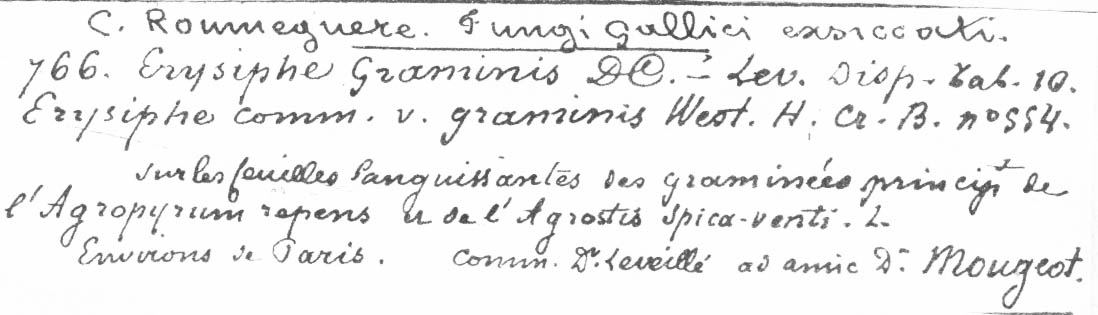 C. Roumeguere. Fungi Gallici exsiccati.
766. Erysiphe Graminis DC. - Lev. Disp. tab. 10.
Erysiphe comm. v. graminis West. H. Cr. B. nº 554.
sur les feuilles languissantes des graminées principt de
l'Agropyrum repens et de l'Agrostis Spica-venti. L.
Environs de Paris. Comm. Dr. Leveillé ad amic Dr. Mougeot.